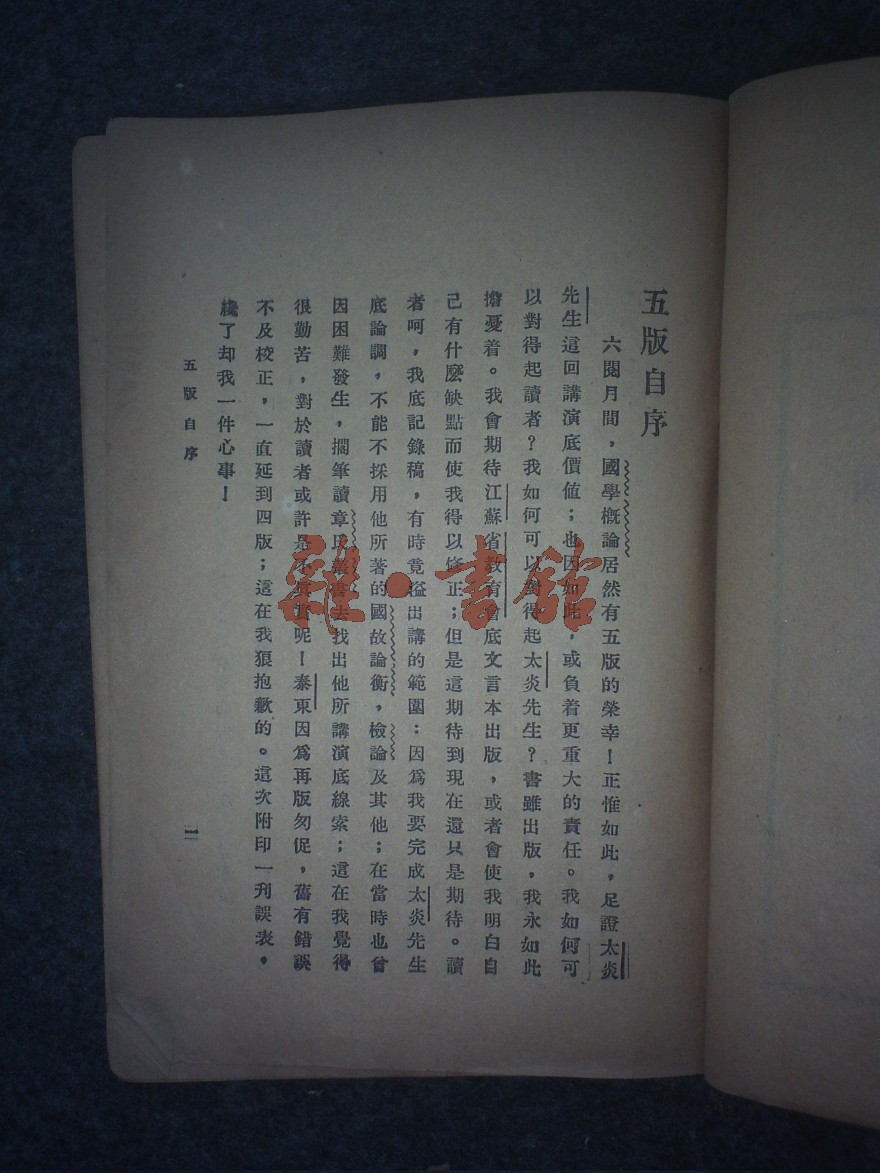 五版自序
六閱月間，國學概論居然有五版的榮幸！正惟如此，足證太炎
先生這回講演底價值；也因如此，或負着更重大的責任。我如何可
以對得起讀者？我如何可以對得起太炎先生？書雖出版，我永如此
擔憂着。我會期待江蘇省教育會底文言本出版，或者會使我明白自
己有什麽缺點而使我得以修正；但是這期待到現在還只是期待。讀
者呵，我底記錄稿，有時竟溢出講的範圍：因爲我要完成太炎先生
底論調，不能不採用他所著的國故論衡，檢論及其他；在當時也曾
因困難發生，擱筆讀章氏叢書去找出他所講演底線索；這在我覺得
很勤苦，對於讀者或許是不負責呢！泰東因爲再版匆促，舊有錯誤
不及校正，一直延到四版；這在我狠抱歉的。這次附印一刊誤表，
纔了却我一件心事！
五版自序
一
雜·書館